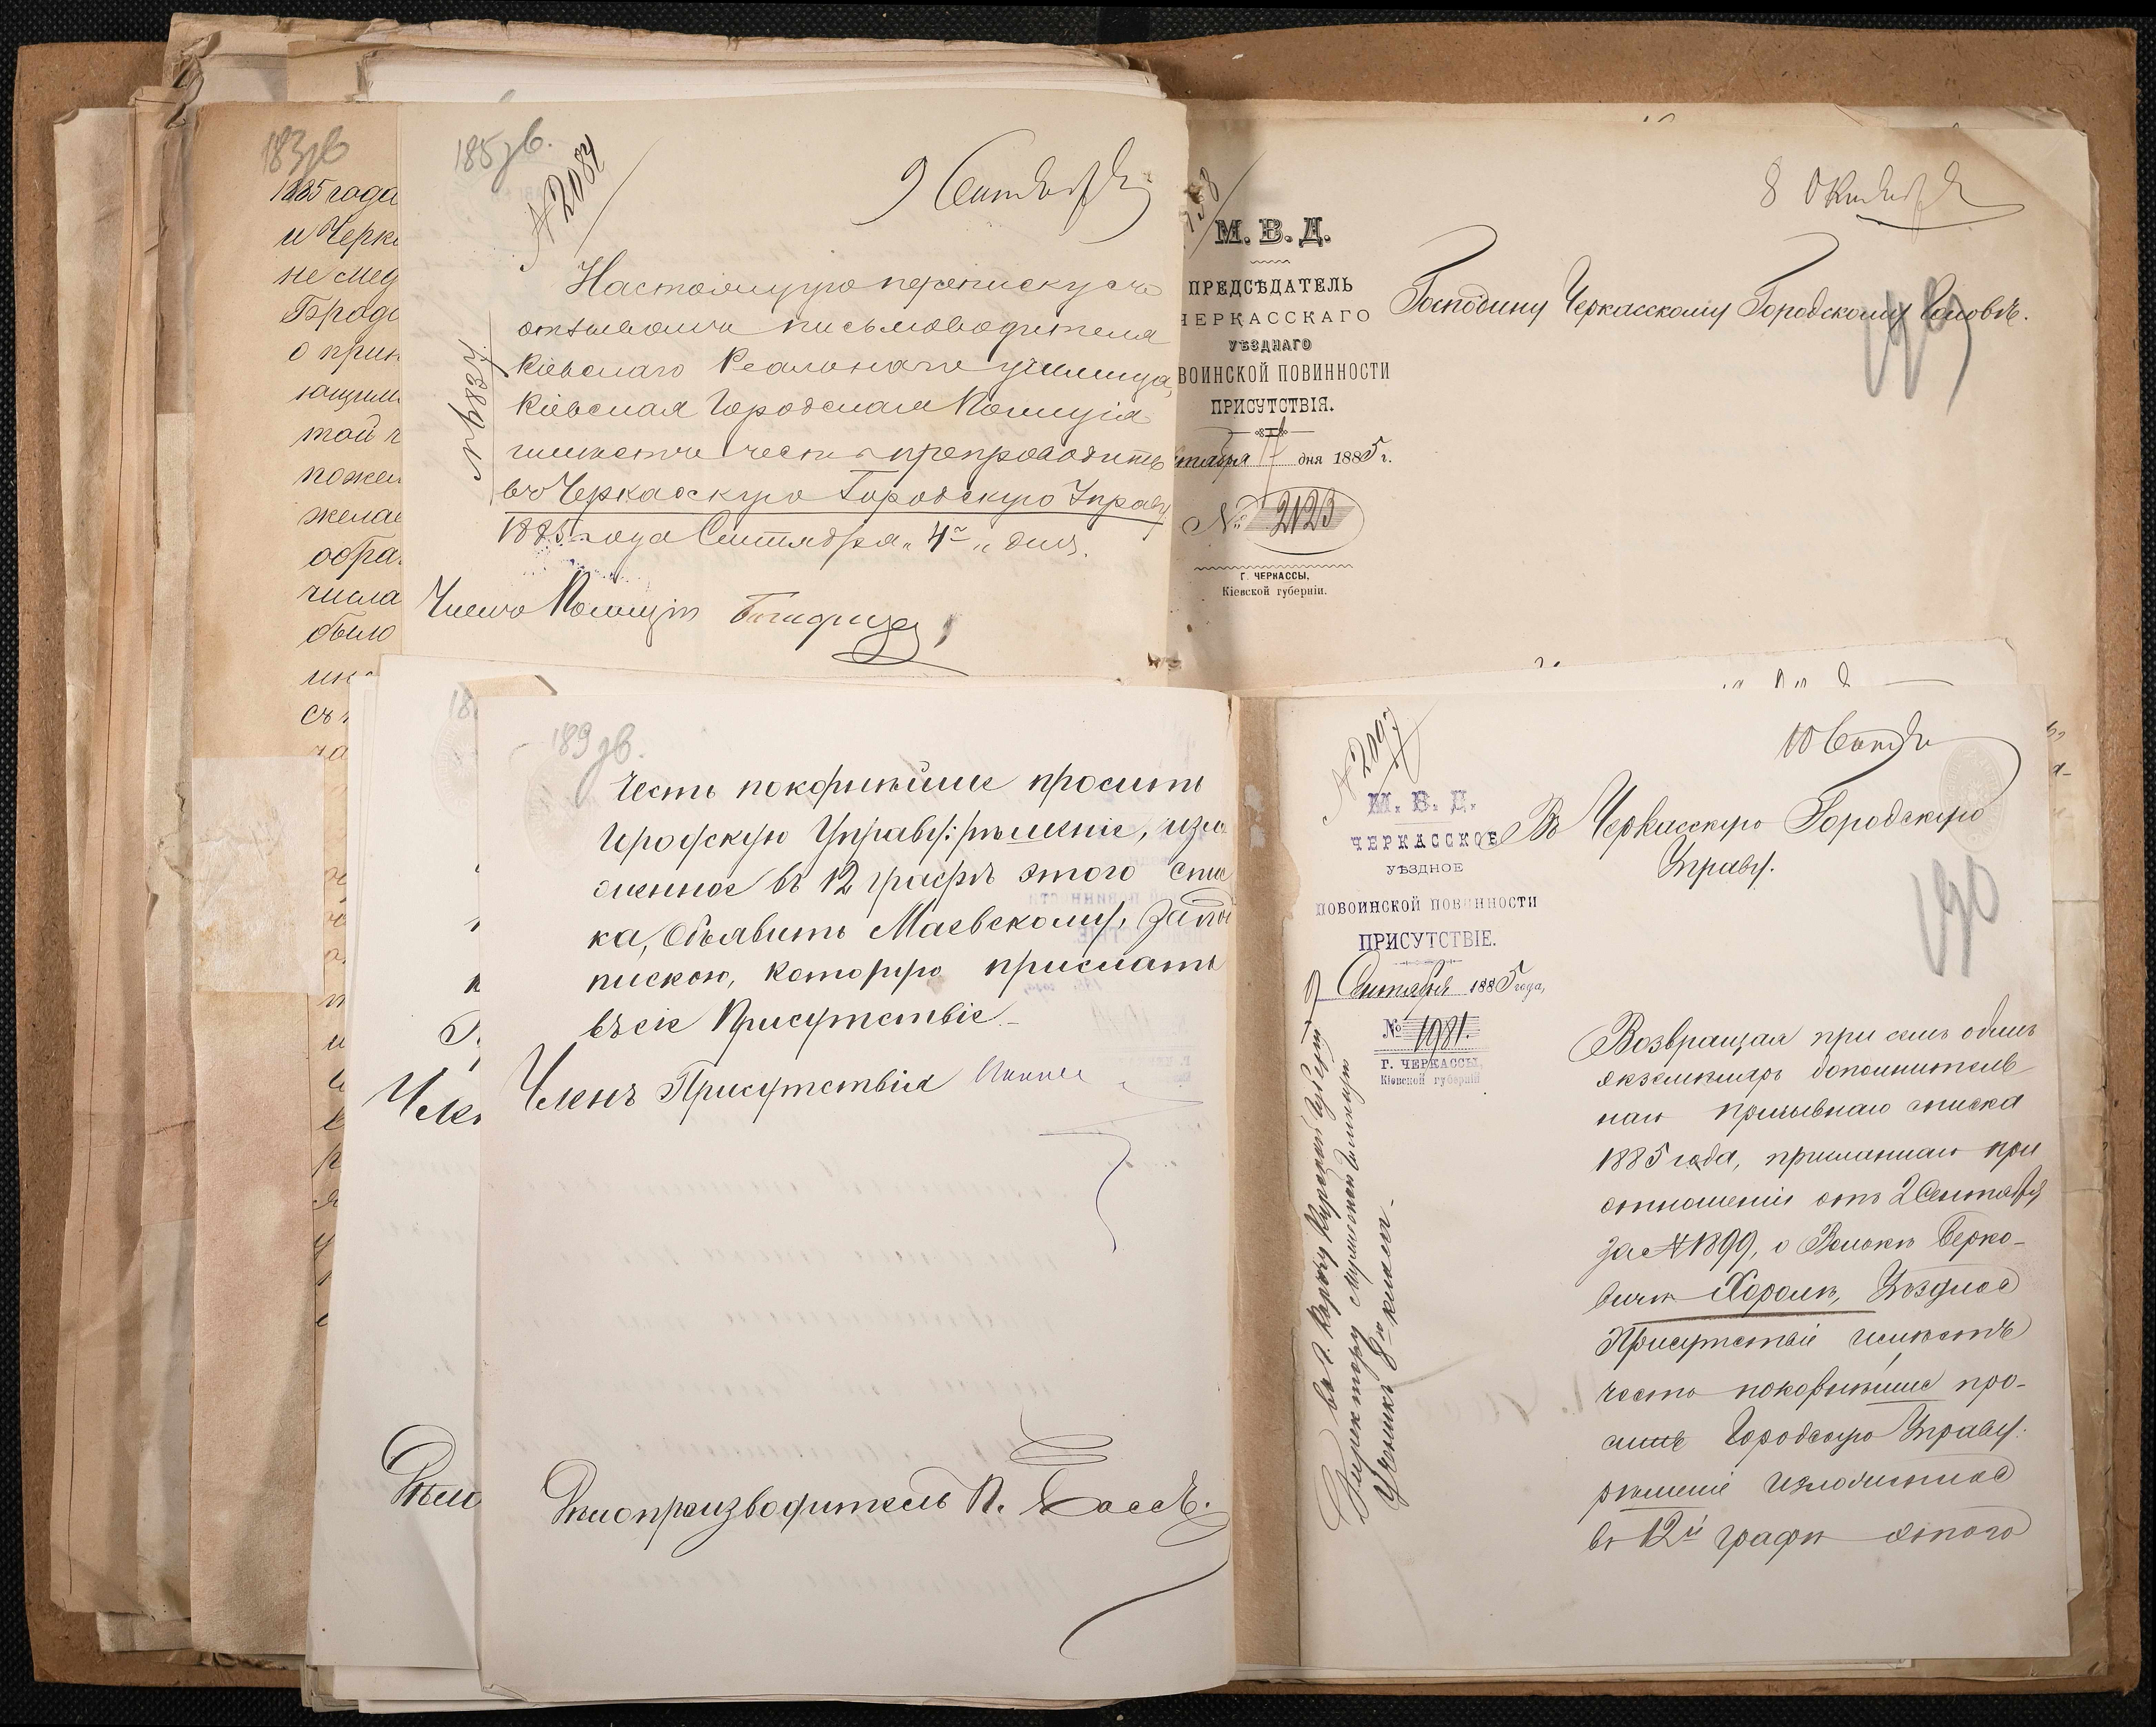 183 зв
1885 года
и Черк
не мед
Брод
о прин
ющим
той ч
поже
жела
обра
числа
было
185 зв.
№ 2084
9 Сентября
Настоящую переписку съ
отзывомъ письмоводителя
Кіевскаго Реальнаго училища,
Кіевская Городская Коммисія
имѣетъ честь препроводить
въ Черкасскую Городскую Управу
1885 года Сентября „4го„ дня.
Членъ Коммисіи
8 Октября
М. В. Д.
ПРЕДСѢДАТЕЛЬ
ЧЕРКАССКАГО
УѢЗДНАГО
ВОИНСКОЙ ПОВИННОСТИ
ПРИСУТСТВІЯ.
дня 1885 г.
№ 2123
Г. ЧЕРКАССЫ,
Кіевской губерніи.
Господину Черкасскому Городскому Головѣ.
189 зв.
честь покорнѣйше просить
Городскую Управу: рѣшеніе, изло
женное въ 12 графѣ этого спис
ка, Объявить Маевскому, за под
пискою, которую прислать
въ сіе Присутствіе
Членъ Присутствія
Дѣлопроизводитель П. Бассъ.
Член
Дѣло
№ 2097
10 Сентяб
М. В. Д.
ЧЕРКАССКОЕ
УѢЗДНОЕ
ПО ВОИНСКОЙ ПОВИННОСТИ
ПРИСУТСТВІЕ.
9 Сентября 1885 года,
№ 1981.
Г. ЧЕРКАССЫ,
Кіевской губерніи
Въ Черкасскую Городскую
Управу.
190
Возвращая при семъ одинъ
экземпляръ дополнитель-
наго призывнаго списка
1885 года, присланнаго при
отношеніи отъ 2 Сентября
за № 1899, о Велькѣ Берко-
вичѣ Хоролѣ, Уѣздное
Присутствіе имѣетъ
честь покорнѣйше про-
сить Городскую Управу:
рѣшеніе изложенное
въ 12й графѣ этого
Директору
Ученикъ 8го класса